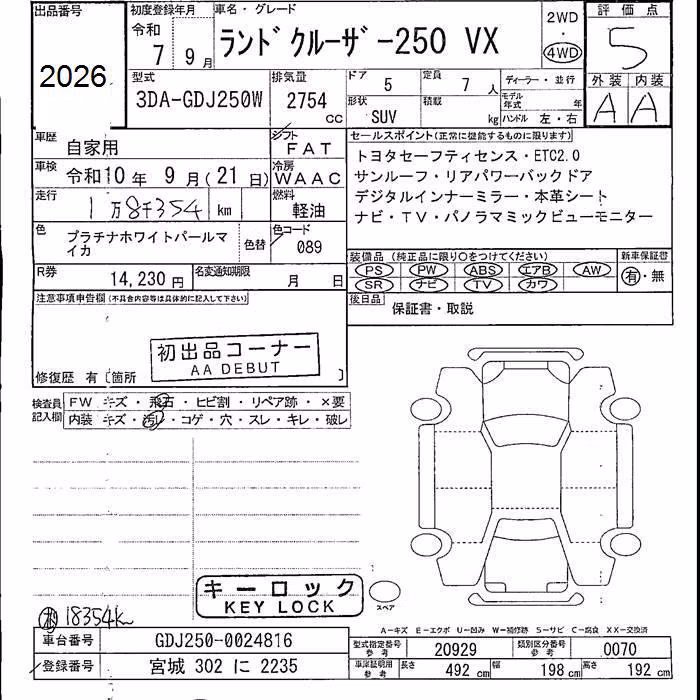 出品番号
2026
初度登録年月
令和
7 年 9 月
車名・グレード
ランドクルーザー250 VX
2WD
4WD
評価点
5
型式
3DA-GDJ250W
排気量
2754 cc
ドア 5
形状 SUV
定員 7 人
積載 kg
ディーラー・並行
モデル年式 年
ハンドル 左・右
外装 内装
A A
車歴
自家用
シフト
FAT
車検
令和10年 9月(21日)
冷房
WAAC
走行
1万8千354 km
燃料
軽油
色
プラチナホワイトパールマイカ
色替
色コード
089
R券
14,230 円
名変通知期限
月 日
セールスポイント(正常に機能するものに限ります)
トヨタセーフティセンス・ETC2.0
サンルーフ・リアパワーバックドア
デジタルインナーミラー・本革シート
ナビ・TV・パノラミックビューモニター
装備品(純正品に限り○をつけてください)
PS PW ABS エアB AW
SR ナビ TV カワ
新車保証書
有・無
後日品
保証書・取説
注意事項申告欄(不具合内容等は具体的に記入して下さい)
初出品コーナー
AA DEBUT
修復歴 有〔箇所 〕
検査員記入欄
FW キズ・飛石・ヒビ割・リペア跡・×要
内装 キズ・汚レ・コゲ・穴・スレ・キレ・破レ
キーロック
KEY LOCK
スペア
18354k
A-キズ E-エクボ U-凹み W-補修跡 S-サビ C-腐食 XX-交換済
車台番号
GDJ250-0024816
型式指定番号 参考
20929
類別区分番号 参考
0070
登録番号
宮城 302 に 2235
車庫証明用 参考
長さ 492 cm
幅 198 cm
高さ 192 cm